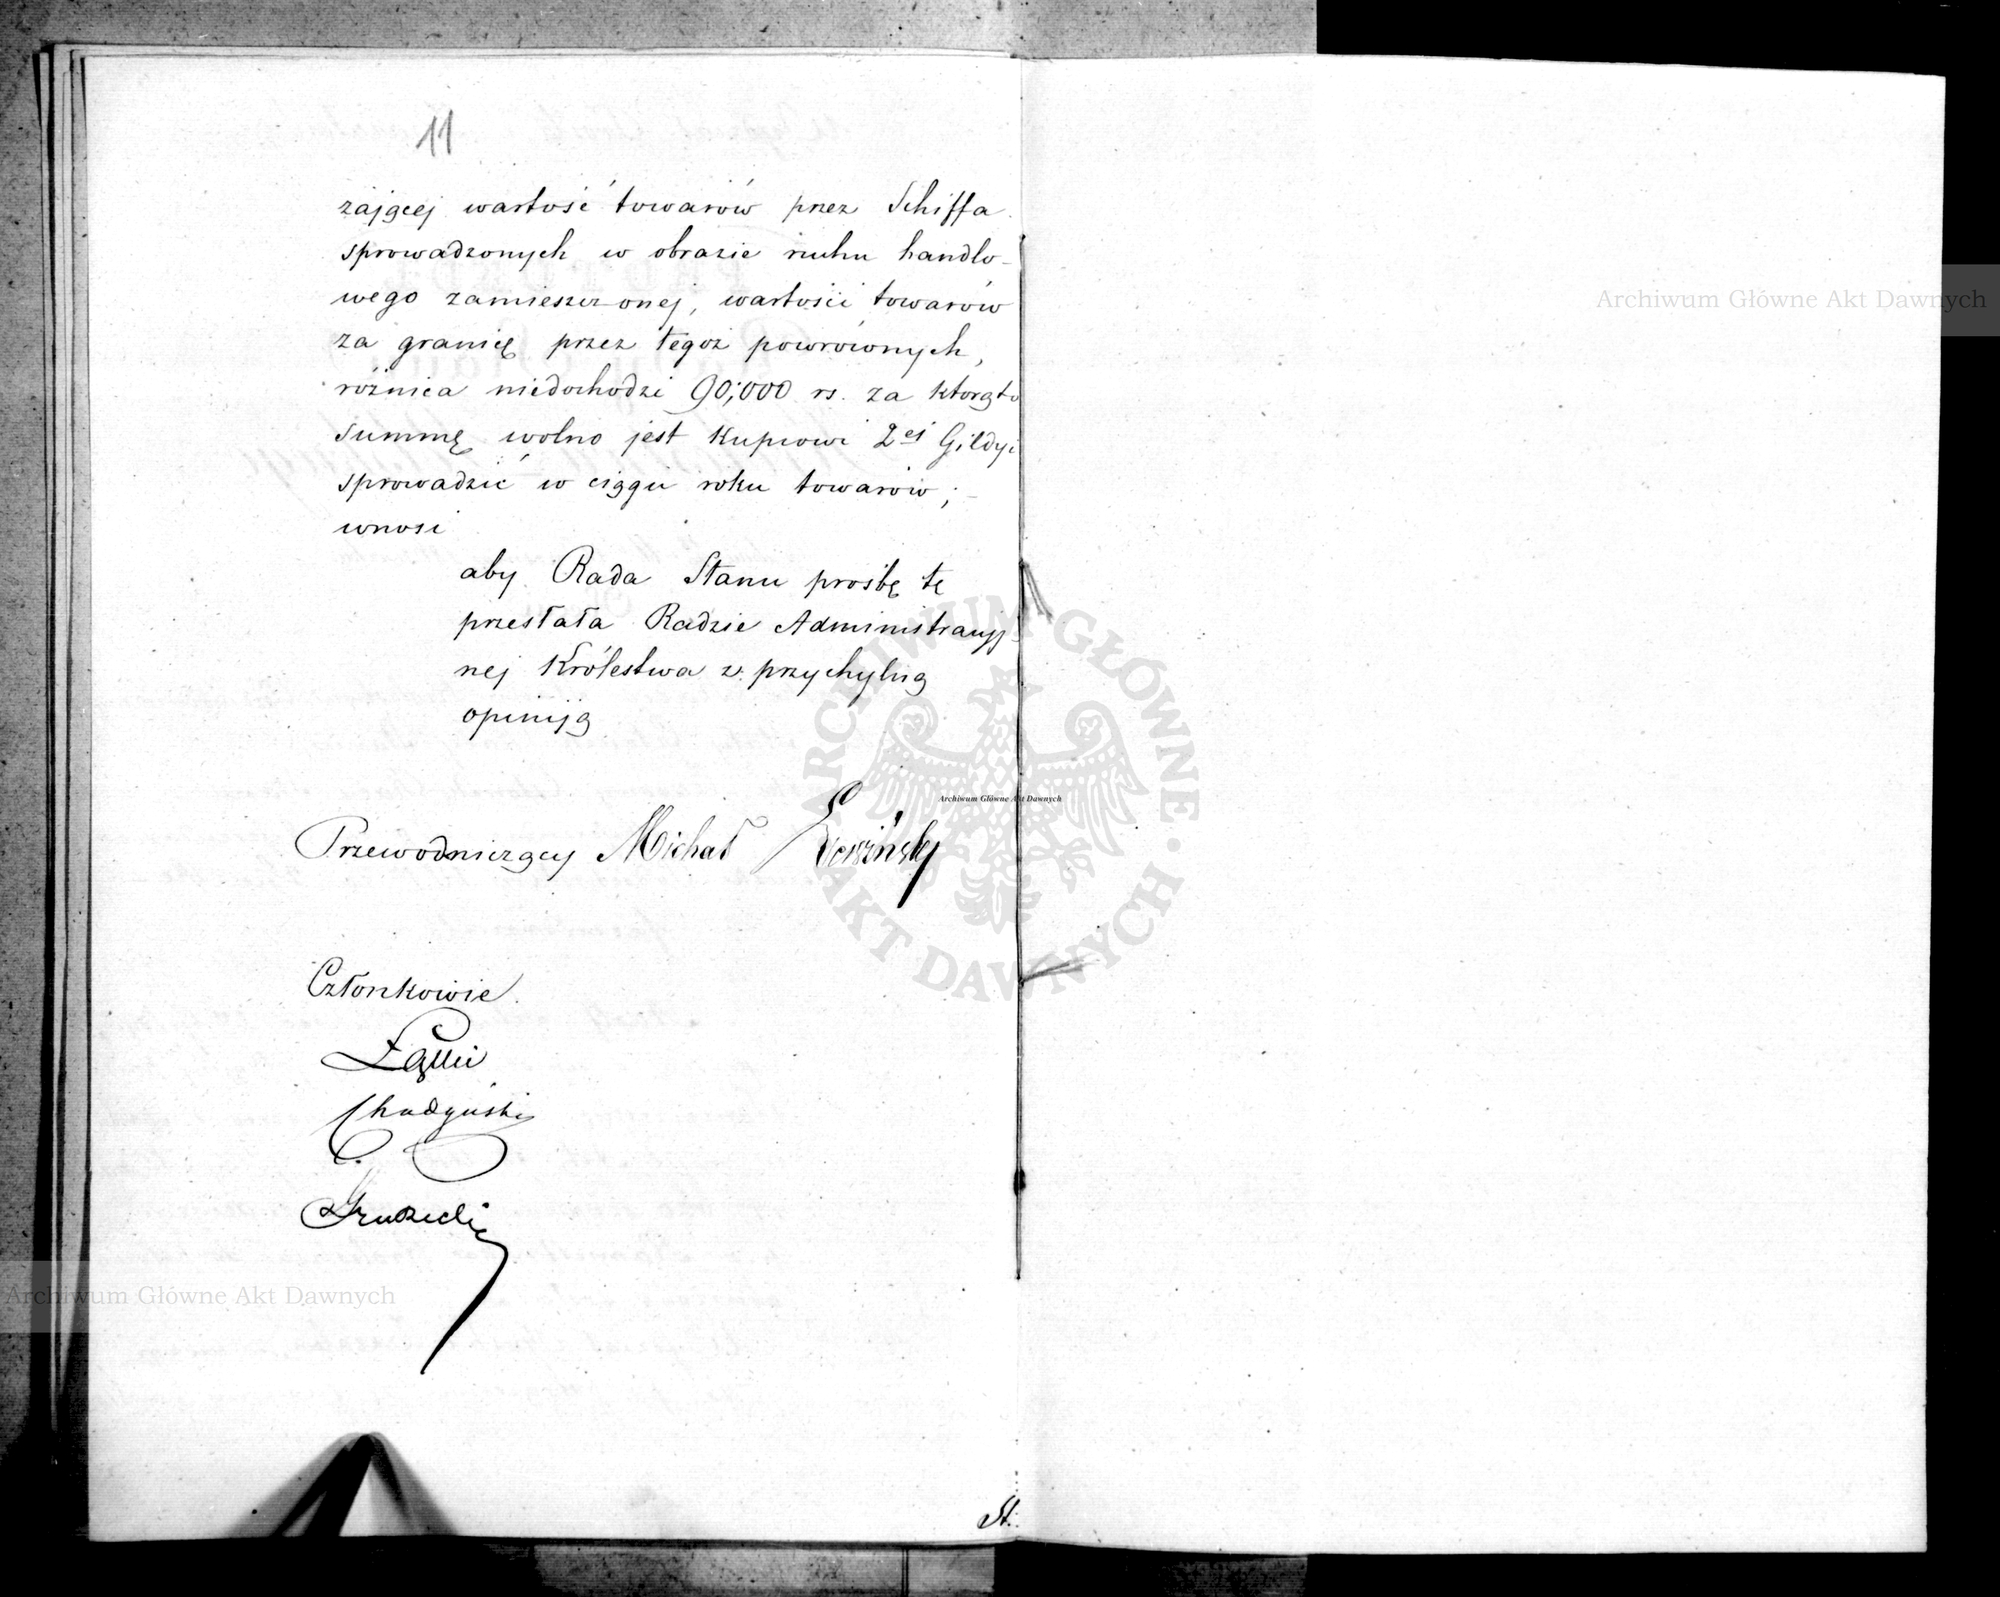 11
zającej wartość towarów przez Schiffa
sprowadzonych w obrazie ruchu handlo-
wego zamieszczonej, wartości towarów
za granicę przez tegoż powróconych,
różnica niedochodzi 90,000 rs. za którąto
summę wolno jest Kupcowi 2ej Gildyi
sprowadzić w ciągu roku towarów;
wnosi
aby Rada Stanu prośbę tę
przesłała Radzie Administracyj
nej Królestwa z przychylną
opiniją
Przewodniczący Michał
Członkowie
Łąski
St.
Archiwum Główne Akt Dawnych
Archiwum Główne Akt Dawnych
Archiwum Główne Akt Dawnych
ARCHIWUM GŁÓWNE AKT DAWNYCH